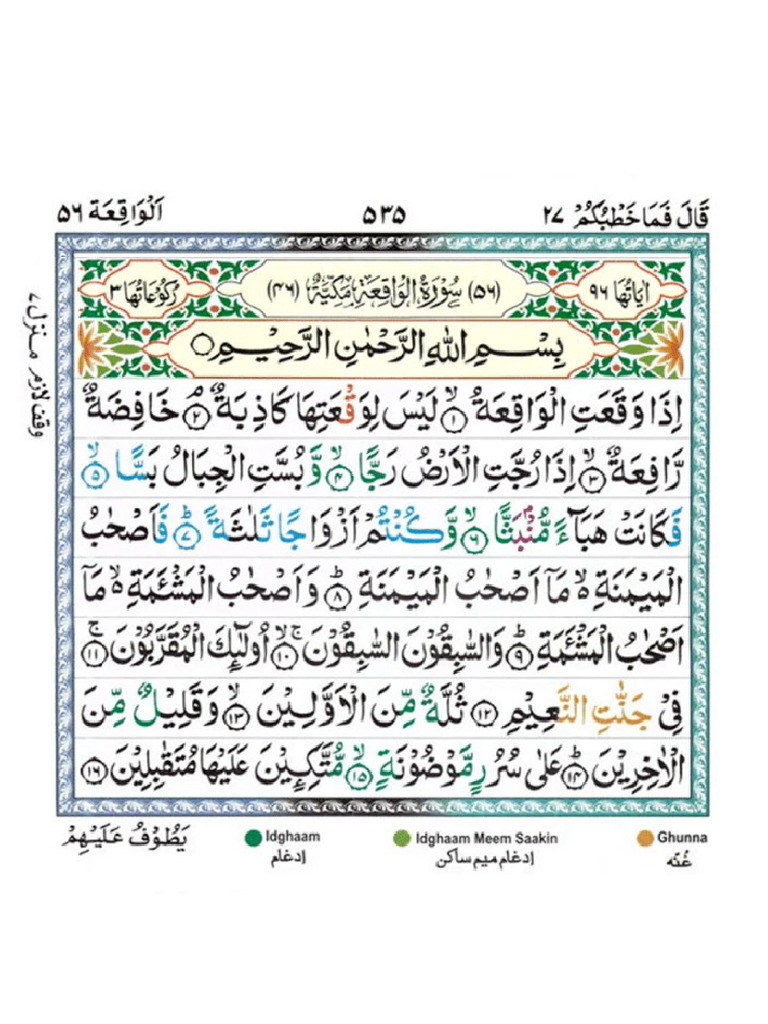 قَالَ فَمَا خَطْبُكُمْ ٢٧ ٥٣٥ اَلْوَاقِعَة ٥٦
اٰيَاتُهَا ٩٦ (٥٦) سُوْرَةُ الْوَاقِعَةِ مَكِّيَّةٌ (٤٦) رُكُوْعَاتُهَا ٣
بِسْمِ اللهِ الرَّحْمٰنِ الرَّحِيْمِ
اِذَا وَقَعَتِ الْوَاقِعَةُ ۙ ١ لَيْسَ لِوَقْعَتِهَا كَاذِبَةٌ ۘ ٢ خَافِضَةٌ
رَّافِعَةٌ ۙ ٣ اِذَا رُجَّتِ الْاَرْضُ رَجًّا ۙ ٤ وَّبُسَّتِ الْجِبَالُ بَسًّا ۙ ٥
فَكَانَتْ هَبَآءً مُّنْۢبَثًّا ۙ ٦ وَّكُنْتُمْ اَزْوَاجًا ثَلٰثَةً ؕ ٧ فَاَصْحٰبُ
الْمَيْمَنَةِ ۙ مَاۤ اَصْحٰبُ الْمَيْمَنَةِ ؕ ٨ وَاَصْحٰبُ الْمَشْئَمَةِ ۙ مَاۤ
اَصْحٰبُ الْمَشْئَمَةِ ؕ ٩ وَالسّٰبِقُوْنَ السّٰبِقُوْنَ ۚۙ ١٠ اُولٰٓئِكَ الْمُقَرَّبُوْنَ ۚ ١١
فِيْ جَنّٰتِ النَّعِيْمِ ١٢ ثُلَّةٌ مِّنَ الْاَوَّلِيْنَ ۙ ١٣ وَقَلِيْلٌ مِّنَ
الْاٰخِرِيْنَ ؕ ١٤ عَلٰى سُرُرٍ مَّوْضُوْنَةٍ ۙ ١٥ مُّتَّكِـِٕيْنَ عَلَيْهَا مُتَقٰبِلِيْنَ ١٦
منزل ٧
وقف لازم
يَطُوْفُ عَلَيْهِمْ
Idghaam
إدغام
Idghaam Meem Saakin
إدغام ميم ساكن
Ghunna
غنّه